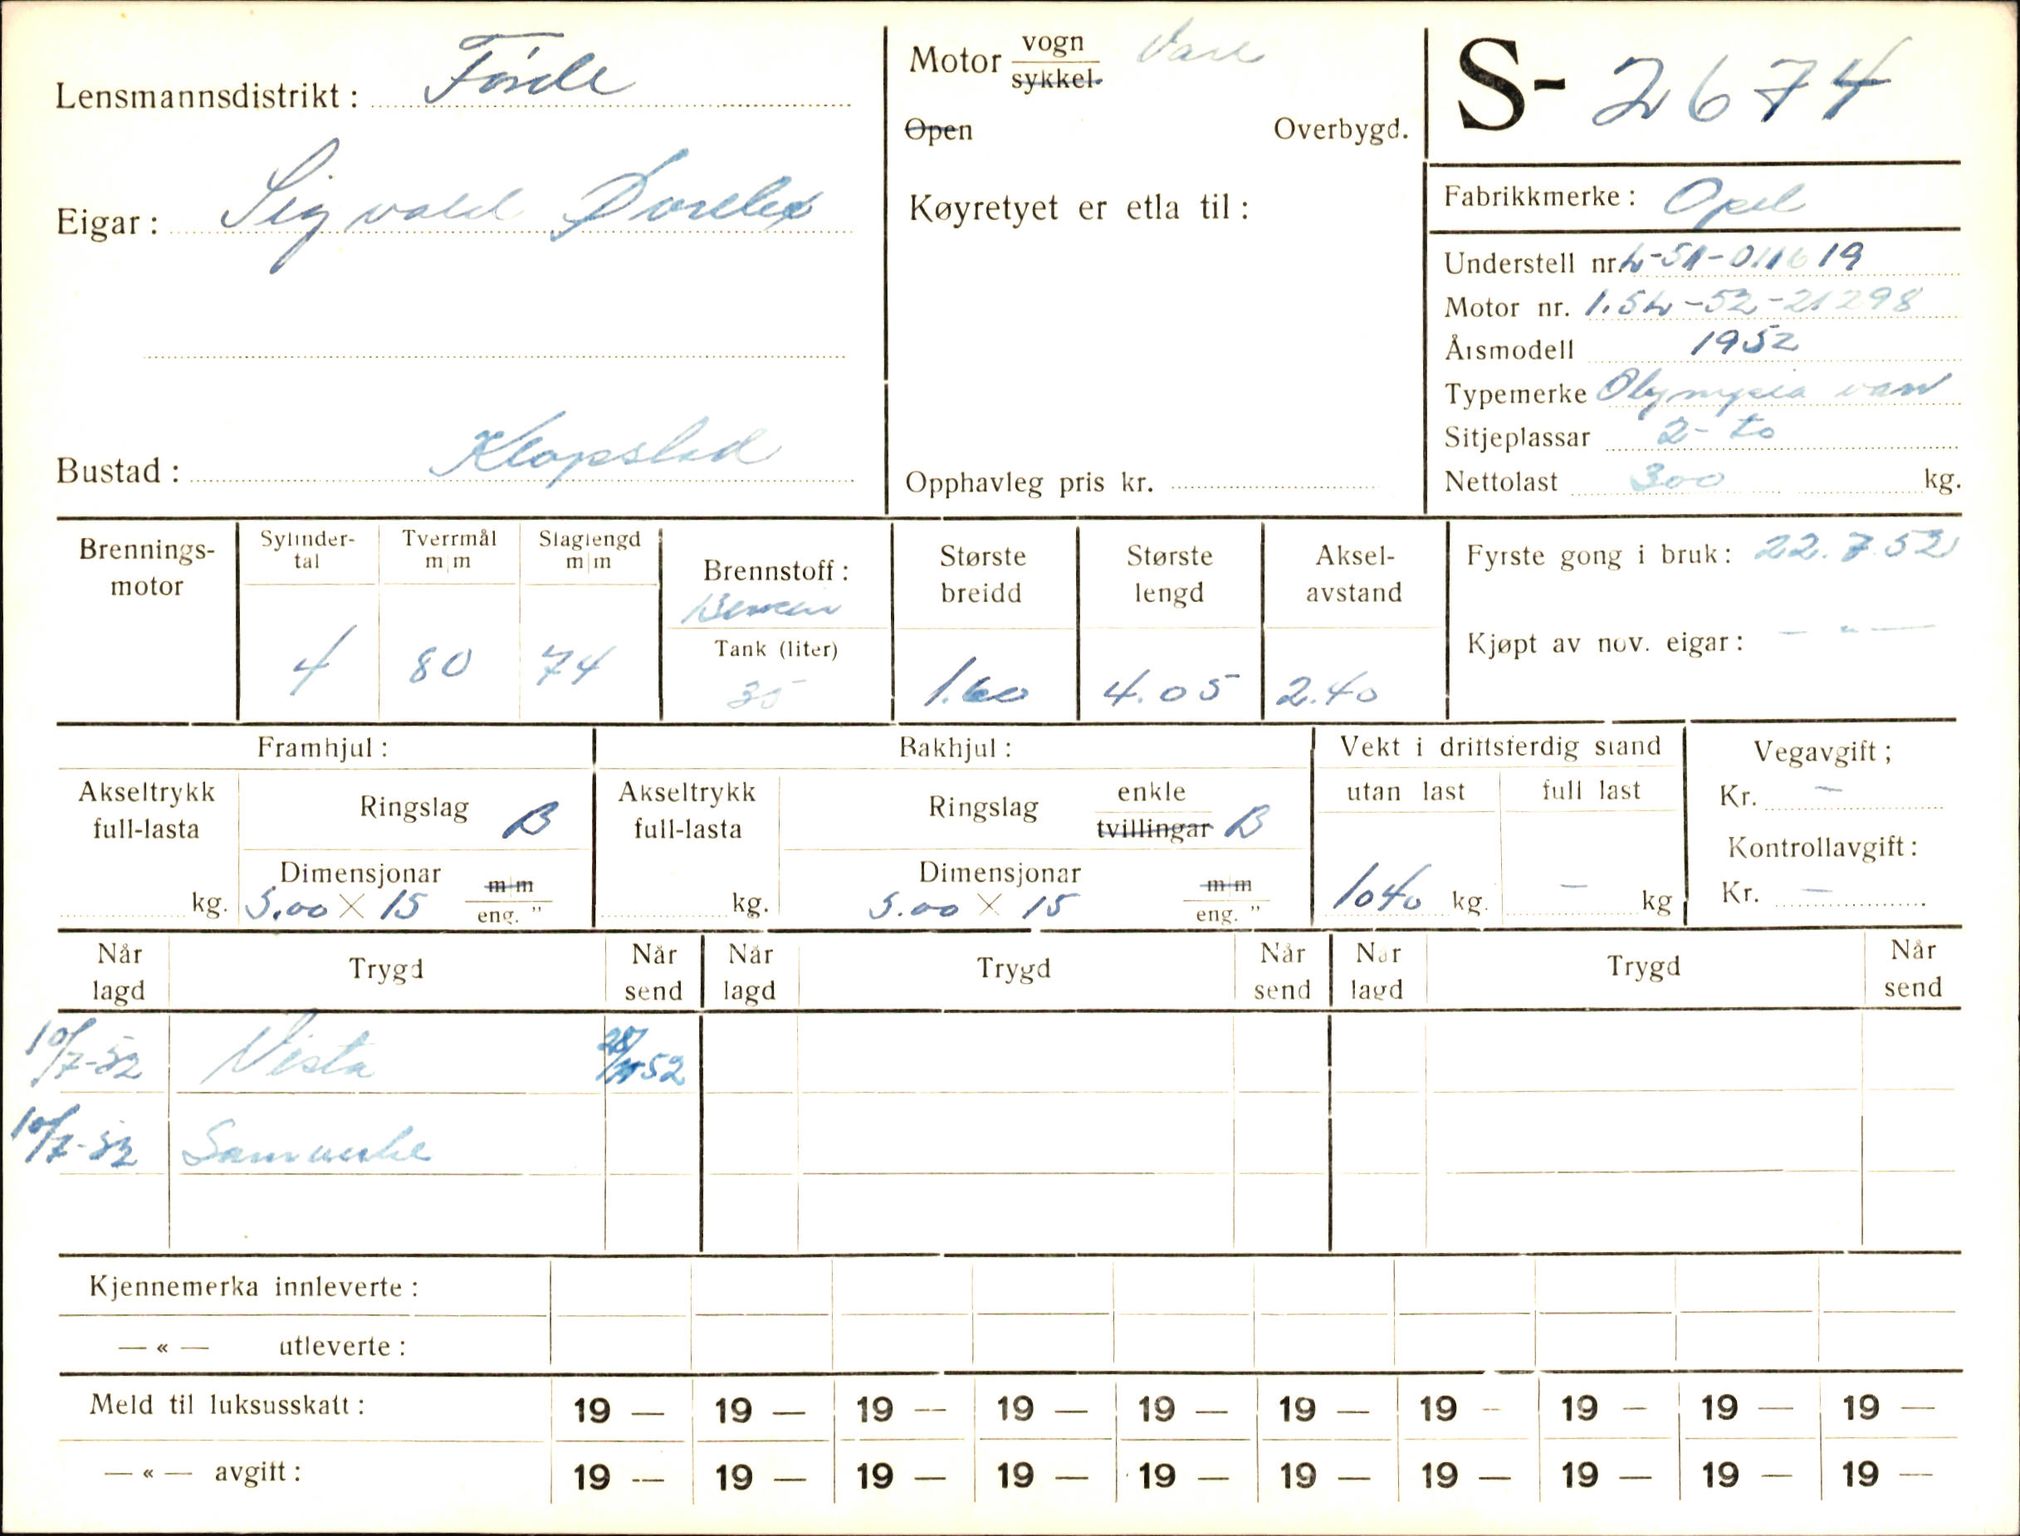 Lensmannsdistrikt: Førde
Eigar: Sigvald
Bustad: Klopstad
Motor vogn Vare
sykkel.
Open Overbygd.
Køyretyet er etla til:
Opphavleg pris kr.
S- 2674
Fabrikkmerke: Opel
Understell nr. L-51-0111619
Motor nr. 1.5L-52-21298
Årsmodell 1952
Typemerke Olympia van
Sitjeplassar 2-to
Nettolast 300 kg.
Brennings-motor
Sylinder-tal 4
Tverrmål m|m 80
Slaglengd m|m 74
Brennstoff: Bensin
Tank (liter) 35
Største breidd 1.60
Største lengd 4.05
Aksel-avstand 2.40
Fyrste gong i bruk: 22.7.52
Kjøpt av nov. eigar: - " -
Framhjul:
Akseltrykk full-lasta kg.
Ringslag B
Dimensjonar 5.00 X 15 m|m eng. "
Bakhjul:
Akseltrykk full-lasta kg.
Ringslag enkle tvillingar B
Dimensjonar 5.00 X 15 m|m eng. "
Vekt i driftsferdig stand
utan last 1040 kg.
full last - kg
Vegavgift;
Kr. -
Kontrollavgift:
Kr. -
Når lagd Trygd Når send Når lagd Trygd Når send Når lagd Trygd Når send
10/7-52 Vesta 52
10/7-52 Samvirke
Kjennemerka innleverte:
— « — utleverte:
Meld til luksusskatt: 19 — 19 — 19 — 19 — 19 — 19 — 19 — 19 — 19 — 19 —
— « — avgift: 19 — 19 — 19 — 19 — 19 — 19 — 19 — 19 — 19 — 19 —